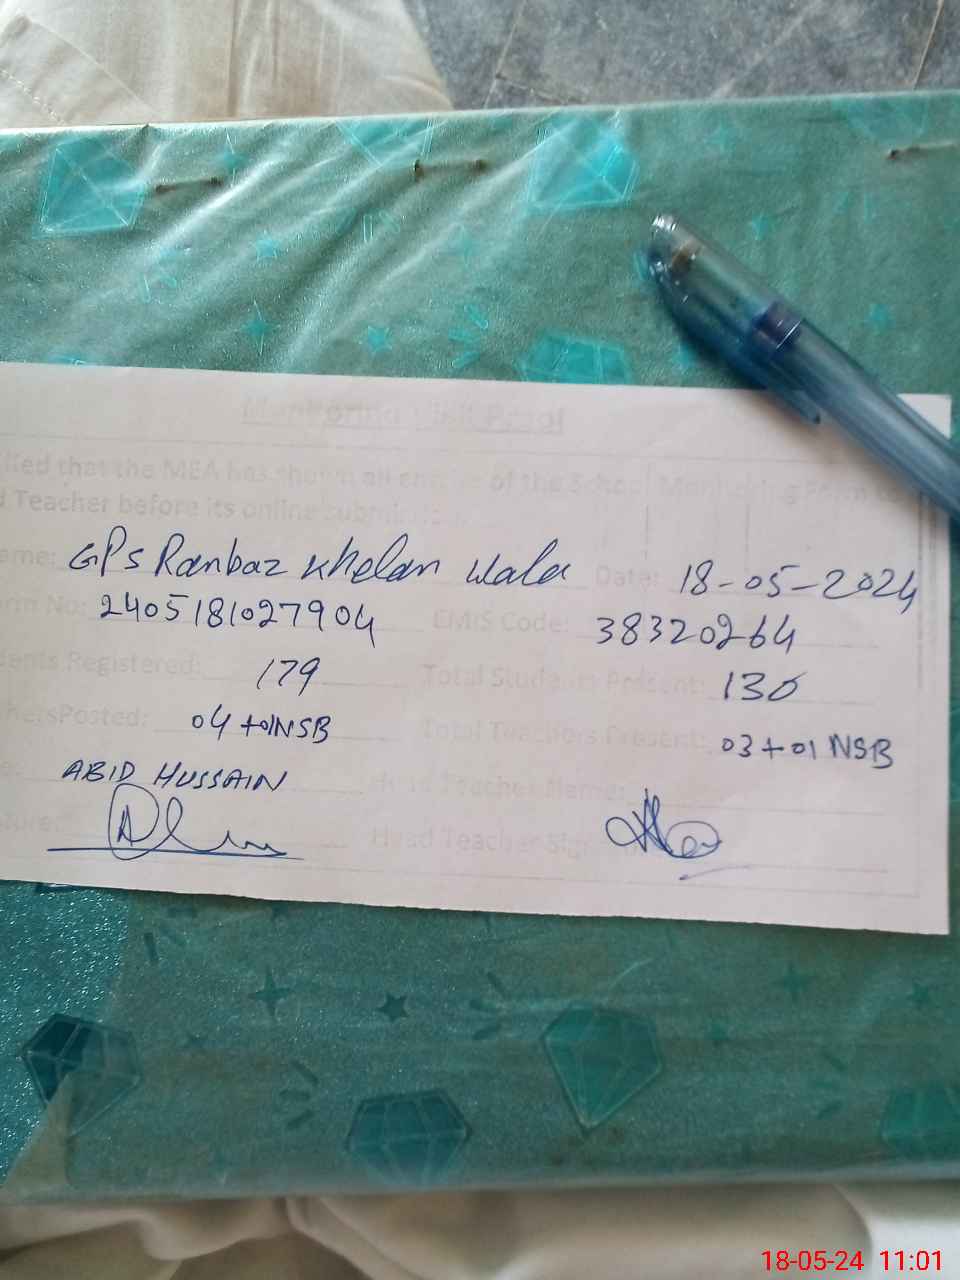 Monitoring Visit Proof
that the MEA has shown all entries of the School Monitoring Form to
Teacher before its online submission.
GPS Ranbaz Khelan Wala Date: 18-05-2024
No: 2405181027904 EMIS Code: 38320264
Registered: 179 Total Students Present: 130
Posted: 04+01NSB Total Teachers Present: 03+01 NSB
ABID HUSSAIN Head Teacher Name:
Head Teacher
18-05-24 11:01